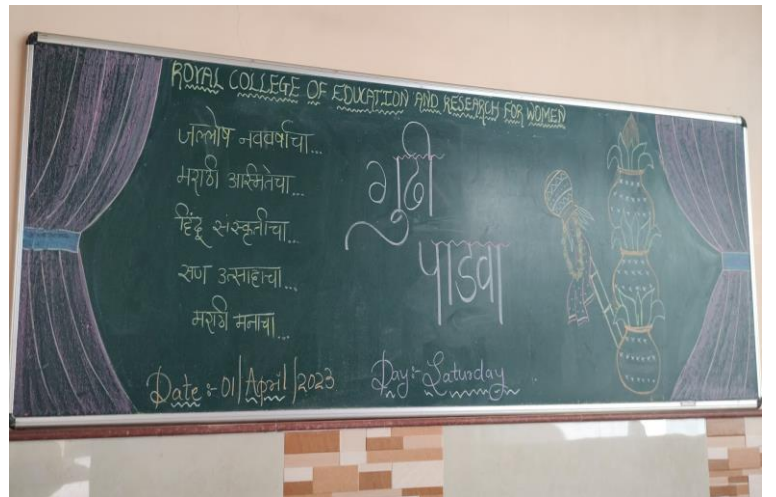 ROYAL COLLEGE OF EDUCATION AND RESEARCH FOR WOMEN
जल्लोष नववर्षाचा...
मराठी अस्मितेचा...
हिंदू संस्कृतीचा...
सण उत्साहाचा...
मराठी मनाचा...
गुढी
पाडवा
Date :- 01/April/2023
Day:- Saturday